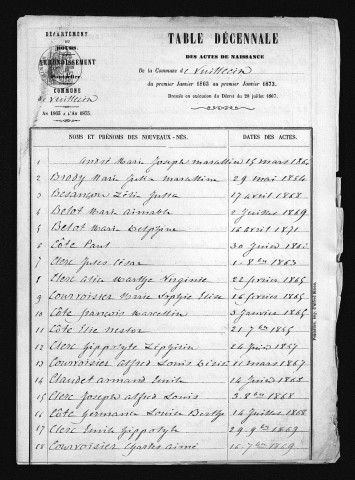 DÉPARTEMENT
DU
DOUBS
ARRONDISSEMENT
de Pontarlier
COMMUNE
de Vuillecin
An 1863 à l'An 1873.
TABLE DÉCENNALE
DES ACTES DE NAISSANCE
De la Commune de Vuillecin
du premier Janvier 1863 au premier Janvier 1873.
Dressée en exécution du Décret du 20 juillet 1807.
NOMS ET PRÉNOMS DES NOUVEAUX-NÉS. DATES DES ACTES.
1 André Marie Joseph 15 mars
2 Marie Julia 29 mai 1864
3 Besançon Zélie 17 avril 1868
4 Belot Marie 2 Juillet 1869
5 Belot Marie Delphine 16 avril 1871
6 Côte Paul 30 Juin
7 Clerc Jules César 1. 8bre 1863
8 Clerc Marthe Virginie 22 février 1865
9 Courvoisier Marie Sophie Elise 16 février 1865
10 Côte françois Marcellin 3 Janvier 1865
11 Côte Elie Nestor 21. 7bre 1865
12 Clerc Hippolyte Zéphirin 24 Juin 1867
13 Courvoisier Alfred Louis 11 mars 1867
14 Claudet Armand Emile 14 Juin 1868
15 Clerc Joseph Alfred Louis 3. 8bre 1868
16 Côte Germaine Louise Berthe 14 Juillet 1868
17 Clerc Emile Hippolyte 29. 9bre 1869
18 Courvoisier Charles Aimé 16. 7bre 1869